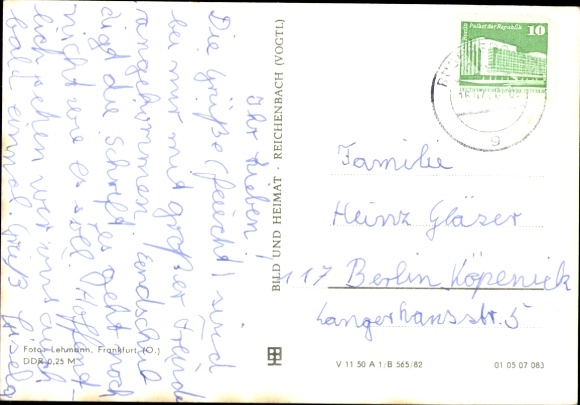 Ihr Lieben!
Die Grüße (feucht) sind
bei mir mit großer Freude
angekommen.
digt die Schrift. Es geht noch
nicht wie es soll. Hoffent-
lich sehen wir uns auch
bald einmal. Gruß Gisela
BILD UND HEIMAT · REICHENBACH (VOGTL)
Berlin Palast der Republik
10
DDR
9
Familie
Heinz Gläser
117 Berlin Köpenick
Langerhansstr. 5
Foto: Lehmann, Frankfurt (O.)
DDR 0,25 M
V 11 50 A 1/B 565/82
01 05 07 083